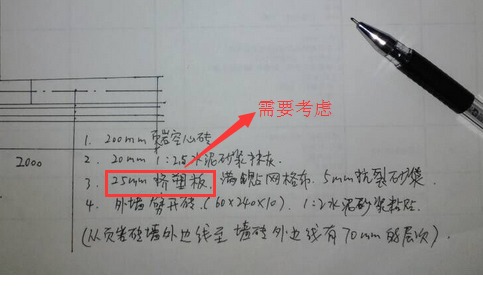 需要考虑
1. 200mm 页岩空心砖
2000
2. 20mm 1:2.5水泥砂浆抹灰.
3. 25mm 挤塑板. 满贴网格布. 5mm抗裂砂浆
4. 外墙劈开砖. (60×240×10). 1:2水泥砂浆粘贴.
(从页岩砖墙外边线至墙砖外边线有70mm的层次).